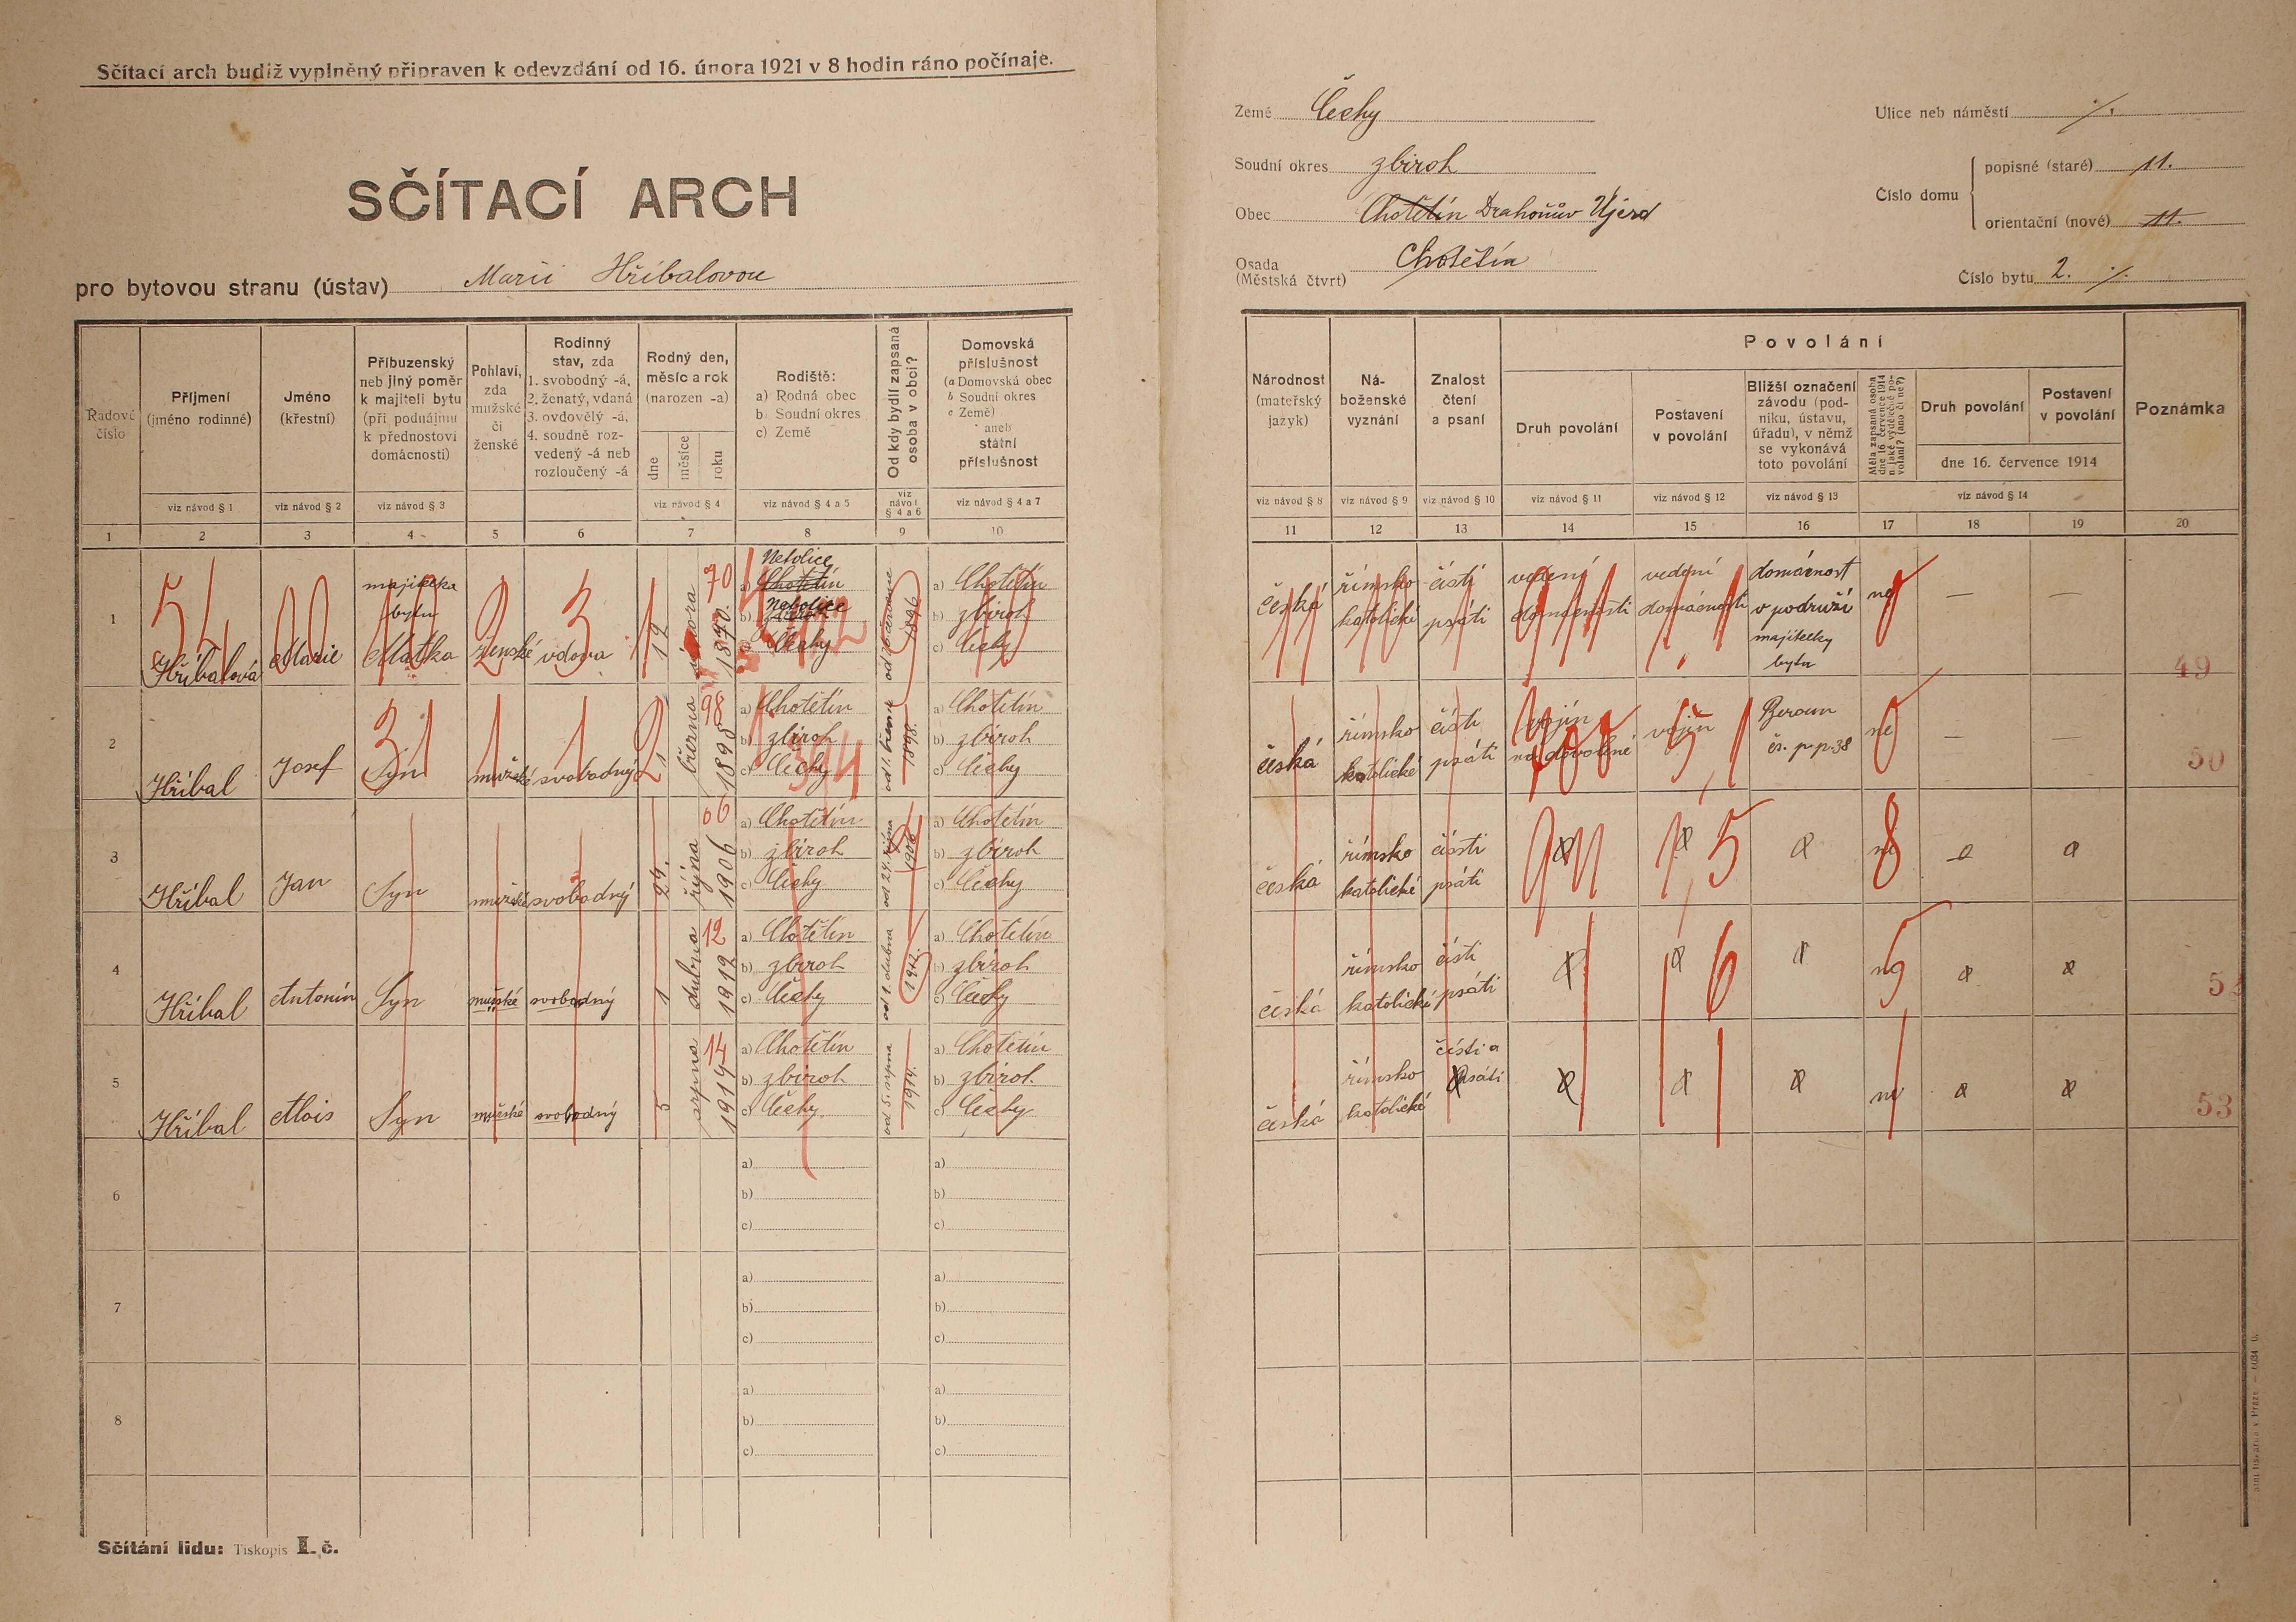 Sčítací arch budiž vyplněný připraven k odevzdání od 16. února 1921 v 8 hodin ráno počínaje.
SČÍTACÍ ARCH
pro bytovou stranu (ústav) Marii Hříbalovou
Země Čechy
Soudní okres Zbiroh
Obec Chotětín Drahoňův Újezd
Osada Chotětín
(Městská čtvrt)
Ulice neb náměstí ·/.
Číslo domu
popisné (staré) 11.
orientační (nové) 11.
Číslo bytu 2. ·/.
Řadové číslo
Příjmení (jméno rodinné)
Jméno (křestní)
Příbuzenský neb jiný poměr k majiteli bytu (při podnájmu k přednostovi domácnosti)
Pohlaví, zda mužské či ženské
Rodinný stav, zda 1. svobodný -á, 2. ženatý, vdaná 3. ovdovělý -á, 4. soudně rozvedený -á neb rozloučený -á
Rodný den, měsíc a rok (narozen -a)
dne měsíce roku
Rodiště: a) Rodná obec b) Soudní okres c) Země
Od kdy bydlí zapsaná osoba v obci?
Domovská příslušnost (a Domovská obec b Soudní okres c Země) aneb státní příslušnost
Národnost (mateřský jazyk)
Náboženské vyznání
Znalost čtení a psaní
Povolání
Druh povolání
Postavení v povolání
Bližší označení závodu (podniku, ústavu, úřadu), v němž se vykonává toto povolání
Měla zapsaná osoba dne 16. července 1914 n. jaké výdělečné povolání? (ano či ne?)
Druh povolání
Postavení v povolání
dne 16. července 1914
Poznámka
viz návod § 1 viz návod § 2 viz návod § 3 viz návod § 4 viz návod § 4 a 5 viz návod § 4 a 6 viz návod § 4 a 7
viz návod § 8 viz návod § 9 viz návod § 10 viz návod § 11 viz návod § 12 viz návod § 13 viz návod § 14
1 2 3 4 5 6 7 8 9 10
11 12 13 14 15 16 17 18 19 20
1 Hříbalová Marie majitelka bytu Matka ženské vdova 12 února 1870 70
Netolice
a) Chotětín
Netolice
b) Zbiroh
c) Čechy
1896
a) Chotětín
b) Zbiroh
c) Čechy
česká římsko katolické čísti psáti vedení domácnosti vedení domácnosti domácnost v podruží majitelky bytu ne — —
49
2 Hříbal Josef Syn mužské svobodný 1 března 1898 98
a) Chotětín
b) Zbiroh
c) Čechy
od 1. března 1898.
a) Chotětín
b) Zbiroh
c) Čechy
česká římsko katolické čísti psáti vojín na dovolené vojín Beroun čs. p. p. 38 ne — —
50
3 Hříbal Jan Syn mužské svobodný 24. října 1906 06
a) Chotětín
b) Zbiroh
c) Čechy
od 24. října 1906
a) Chotětín
b) Zbiroh
c) Čechy
česká římsko katolické čísti psáti ne
4 Hříbal Antonín Syn mužské svobodný 1 dubna 1912 12
a) Chotětín
b) Zbiroh
c) Čechy
od 1. dubna 1912.
a) Chotětín
b) Zbiroh
c) Čechy
česká římsko katolické čísti psáti ne
52
5 Hříbal Alois Syn mužské svobodný 5 srpna 1914 14
a) Chotětín
b) Zbiroh
c) Čechy
od 5. srpna 1914.
a) Chotětín
b) Zbiroh
c) Čechy
česká římsko katolické čísti a psáti ne
53
6
a)
b)
c)
a)
b)
c)
7
a)
b)
c)
a)
b)
c)
8
a)
b)
c)
a)
b)
c)
Sčítání lidu: Tiskopis I. č.